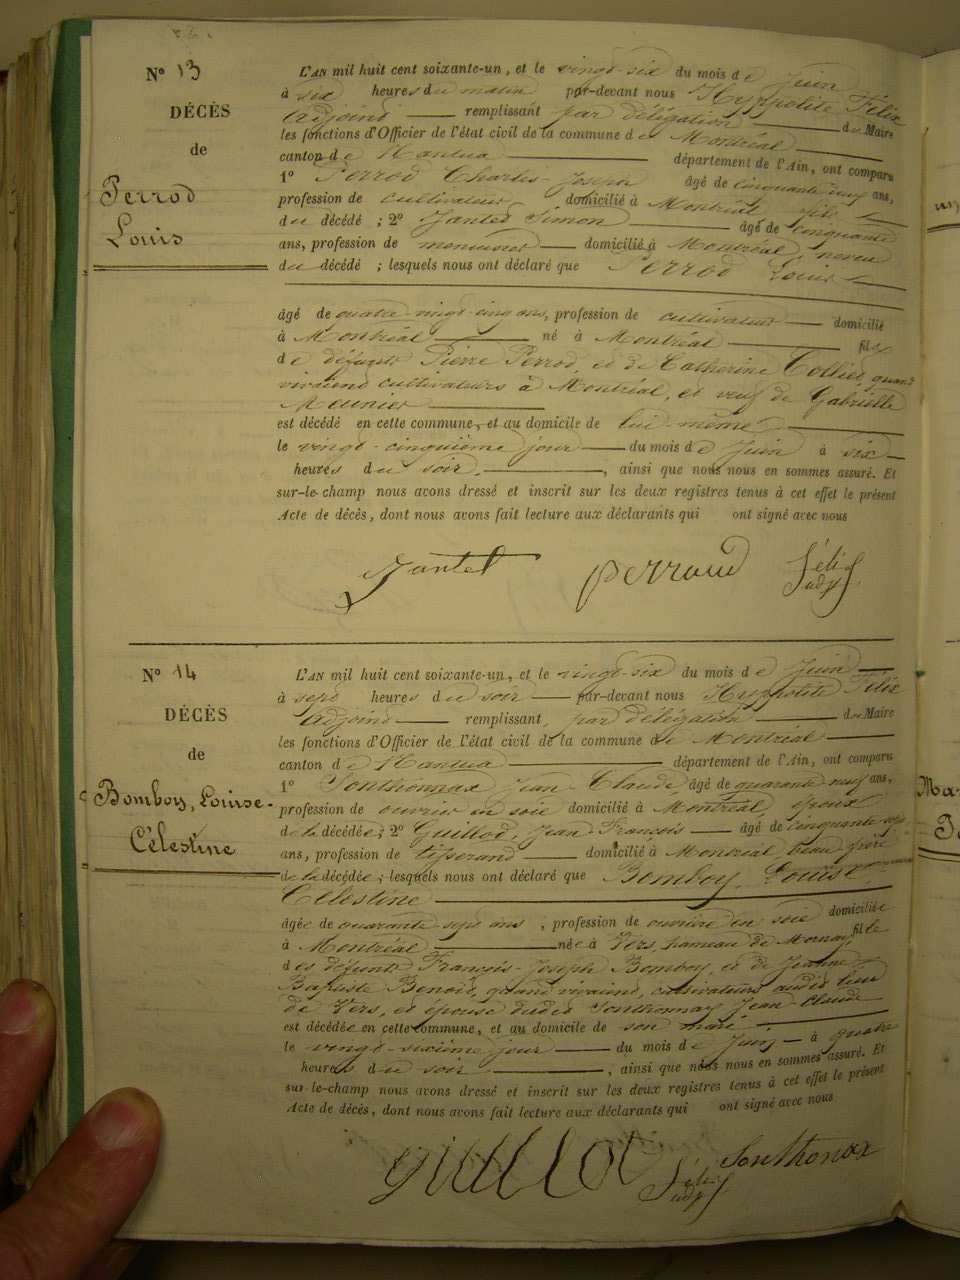 N° 13
DÉCÈS
de
Perrod
Louis
L'AN mil huit cent soixante-un, et le vingt-six du mois de Juin
à six heures du matin par-devant nous Hyppolite Félix
Adjoint remplissant par délégation du Maire
les fonctions d'Officier de l'état civil de la commune de Montréal
canton de Nantua département de l'Ain, ont comparu
1° Perrod Charles-Joseph âgé de cinquante neuf ans,
profession de cultivateur domicilié à Montréal fils
du décédé ; 2° Jantet Simon âgé de cinquante
ans, profession de menuisier domicilié à Montréal, neveu
du décédé ; lesquels nous ont déclaré que Perrod Louis
âgé de quatre-vingt-cinq ans, profession de cultivateur domicilié
à Montréal né à Montréal fils
de défunts Pierre Perrod, et de Catherine Collier, quand
vivaient cultivateurs à Montréal, et veuf de Gabrielle
Meunier
est décédé en cette commune, et au domicile de lui-même
le vingt-cinquième jour du mois de Juin à six
heures du soir, ainsi que nous nous en sommes assuré. Et
sur-le-champ nous avons dressé et inscrit sur les deux registres tenus à cet effet le présent
Acte de décès, dont nous avons fait lecture aux déclarants qui ont signé avec nous
Jantet perraud Félix
adj
N° 14
DÉCÈS
de
Bomboy, Louise-
Célestine
L'AN mil huit cent soixante-un, et le vingt-six du mois de Juin
à sept heures du soir par-devant nous Hyppolite Félix
Adjoint remplissant, par délégation du Maire
les fonctions d'Officier de l'état civil de la commune de Montréal
canton de Nantua département de l'Ain, ont comparu
1° Sonthonnax Jean Claude, âgé de quarante neuf ans,
profession de ouvrier en soie domicilié à Montréal, époux
de la décédée ; 2° Guillot, Jean François âgé de cinquante sept
ans, profession de tisserand domicilié à Montréal, beau frère
de la décédée ; lesquels nous ont déclaré que Bomboy Louise
Célestine
âgée de quarante-sept ans, profession de ouvrière en soie domiciliée
à Montréal née à Vers, hameau de Mornay, fille
des défunts François-Joseph Bomboy, et de Jeanne
Baptiste Benoit, quand vivaient, cultivateurs audit lieu
de Vers, et épouse dudit Sonthonnax Jean-Claude
est décédée en cette commune, et au domicile de son mari
le vingt-sixième jour du mois de Juin à quatre
heures du soir, ainsi que nous nous en sommes assuré. Et
sur-le-champ nous avons dressé et inscrit sur les deux registres tenus à cet effet le présent
Acte de décès, dont nous avons fait lecture aux déclarants qui ont signé avec nous
guillot Félix Sonthonax
adj